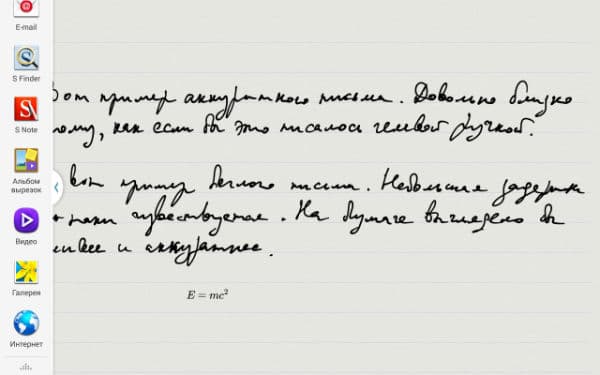 E-mail
S Finder
S Note
Альбом вырезок
Видео
Галерея
Интернет
Вот пример аккуратного письма. Довольно близко
тому, как если бы это писалось гелевой ручкой.
вот пример беглого письма. Небольшая задержка
таки чувствуется. На бумаге выглядело бы
и аккуратнее.
E = mc²